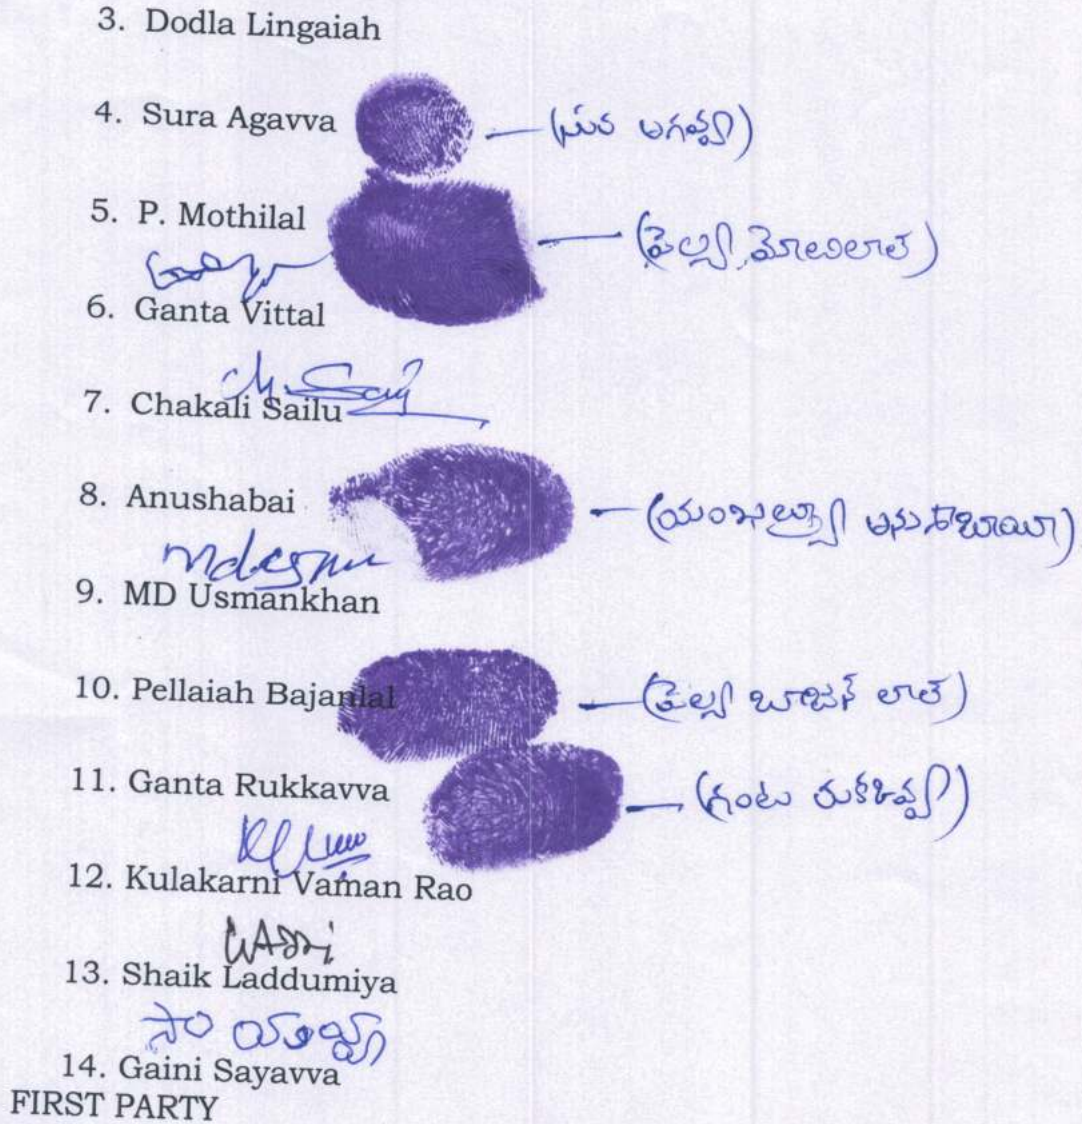 3. Dodla Lingaiah
4. Sura Agavva (సుర అగవ్వ)
5. P. Mothilal (పెల్లి మోతిలాల్)
6. Ganta Vittal
Ch. Sailu
7. Chakali Sailu
8. Anushabai అనుశాబాయి)
9. MD Usmankhan
10. Pellaiah Bajanlal బాజన్ లాల్)
11. Ganta Rukkavva (గంట రుకకవ్వ)
12. Kulakarni Vaman Rao
13. Shaik Laddumiya
14. Gaini Sayavva
FIRST PARTY